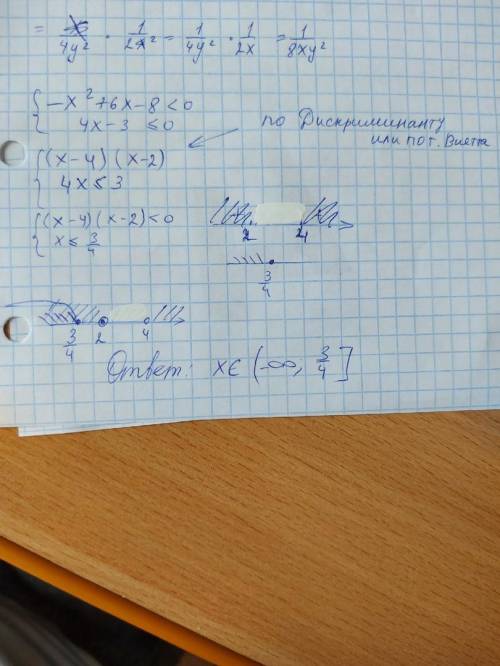 = x/4y² · 1/2x² = 1/4y² · 1/2x = 1/8xy²
{ -x² + 6x - 8 < 0
4x - 3 ≤ 0
по Дискриминанту
или по т. Виетта
{ (x-4) (x-2)
4x ≤ 3
{ (x-4) (x-2) < 0
x ≤ 3/4
2 4
3/4
3/4 2 4
Ответ: x∈ (-∞, 3/4]